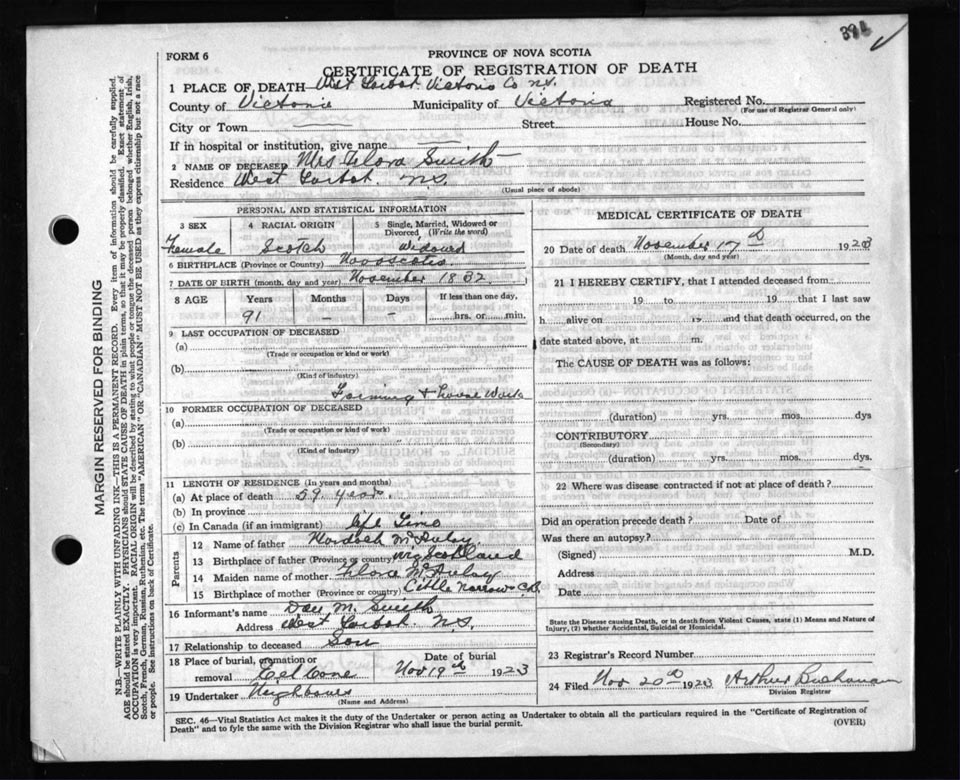 391
FORM 6
PROVINCE OF NOVA SCOTIA
CERTIFICATE OF REGISTRATION OF DEATH
1 PLACE OF DEATH West Tarbot Victoria Co N.S.
County of Victoria Municipality of Victoria Registered No.
(For use of Registrar General only)
City or Town Street House No.
If in hospital or institution, give name
2 NAME OF DECEASED Mrs Flora Smith
Residence West Tarbot. N.S.
(Usual place of abode)
PERSONAL AND STATISTICAL INFORMATION
3 SEX 4 RACIAL ORIGIN 5 Single, Married, Widowed or Divorced (Write the word)
Female Scotch Widowed
6 BIRTHPLACE (Province or Country) Nova Scotia
7 DATE OF BIRTH (month, day and year) November 1832
8 AGE Years Months Days If less than one day,
91 – – hrs. or min.
9 LAST OCCUPATION OF DECEASED
(a)
(Trade or occupation or kind or work)
(b)
(Kind of industry)
Farming + House Work
10 FORMER OCCUPATION OF DECEASED
(a)
(Trade or occupation or kind or work)
(b) "
(Kind of industry)
11 LENGTH OF RESIDENCE (In years and months)
(a) At place of death 59. years
(b) In province
(c) In Canada (if an immigrant) life Time
Parents
12 Name of father Murdoch McAulay
13 Birthplace of father (Province or country) Scotland
14 Maiden name of mother Flora McAulay
15 Birthplace of mother (Province or country) Little Narrows C.B.
16 Informant's name Dan M. Smith
Address West Tarbot. N.S.
17 Relationship to deceased Son
18 Place of burial, cremation or removal Date of burial
Nov 19th 1923
19 Undertaker Neighbours
(Name and Address)
MEDICAL CERTIFICATE OF DEATH
20 Date of death November 17th 1923
(Month, day and year)
21 I HEREBY CERTIFY, that I attended deceased from
19 to 19 that I last saw
h alive on 19 and that death occurred, on the
date stated above, at m.
The CAUSE OF DEATH was as follows:
(duration) yrs. mos. dys
CONTRIBUTORY
(Secondary)
(duration) yrs. mos. dys.
22 Where was disease contracted if not at place of death?
Did an operation precede death? Date of
Was there an autopsy?
(Signed) M.D.
Address
Date
State the Disease causing Death, or in death from Violent Causes, state (1) Means and Nature of
Injury, (2) whether Accidental, Suicidal or Homicidal.
23 Registrar's Record Number
24 Filed Nov 20th 1923 Arthur Buchanan
Division Registrar
SEC. 46—Vital Statistics Act makes it the duty of the Undertaker or person acting as Undertaker to obtain all the particulars required in the "Certificate of Registration of
Death" and to fyle the same with the Division Registrar who shall issue the burial permit.
(OVER)
MARGIN RESERVED FOR BINDING
N.B.—WRITE PLAINLY WITH UNFADING INK—THIS IS A PERMANENT RECORD. Every item of information should be carefully supplied.
AGE should be stated EXACTLY. PHYSICIANS should STATE CAUSE OF DEATH in plain terms, so that it may be properly classified. Exact statement of
OCCUPATION is very important. RACIAL ORIGIN will be described by stating to what people or tongue the deceased person belonged whether English, Irish,
Scotch, French, German, Russian, Ruthenian, etc. The terms "AMERICAN" OR "CANADIAN" MUST NOT BE USED as they express citizenship but not a race
or people. See instructions on back of Certificate.